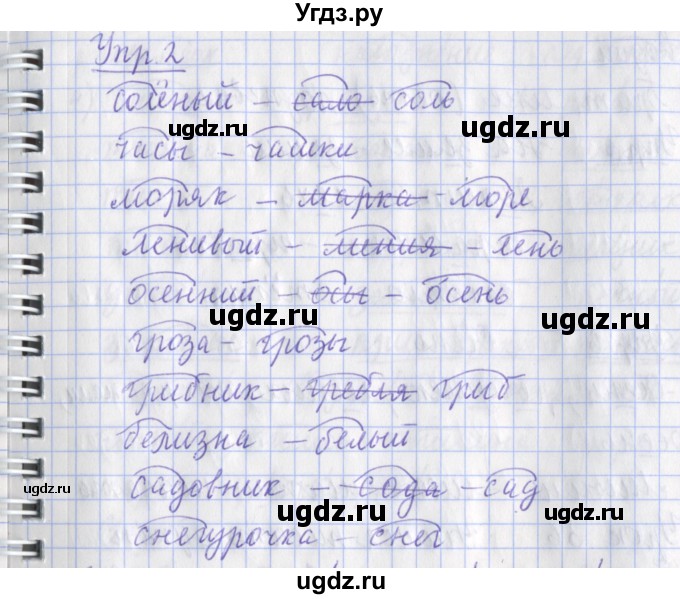 Угдз.ру
Упр. 2
солёный – сало соль
часы – часики
моряк – марка – море
ленивый – линия – лень
осенний – осы – осень
гроза – грозы
грибник – гребля гриб
белизна – белый
садовник – сода – сад
снегурочка – снег
ugdz.ru
ugdz.ru
ugdz.ru
ugdz.ru
ugdz.ru
ugdz.ru
ugdz.ru
ugdz.ru
ugdz.ru
ugdz.ru
ugdz.ru
ugdz.ru
ugdz.ru